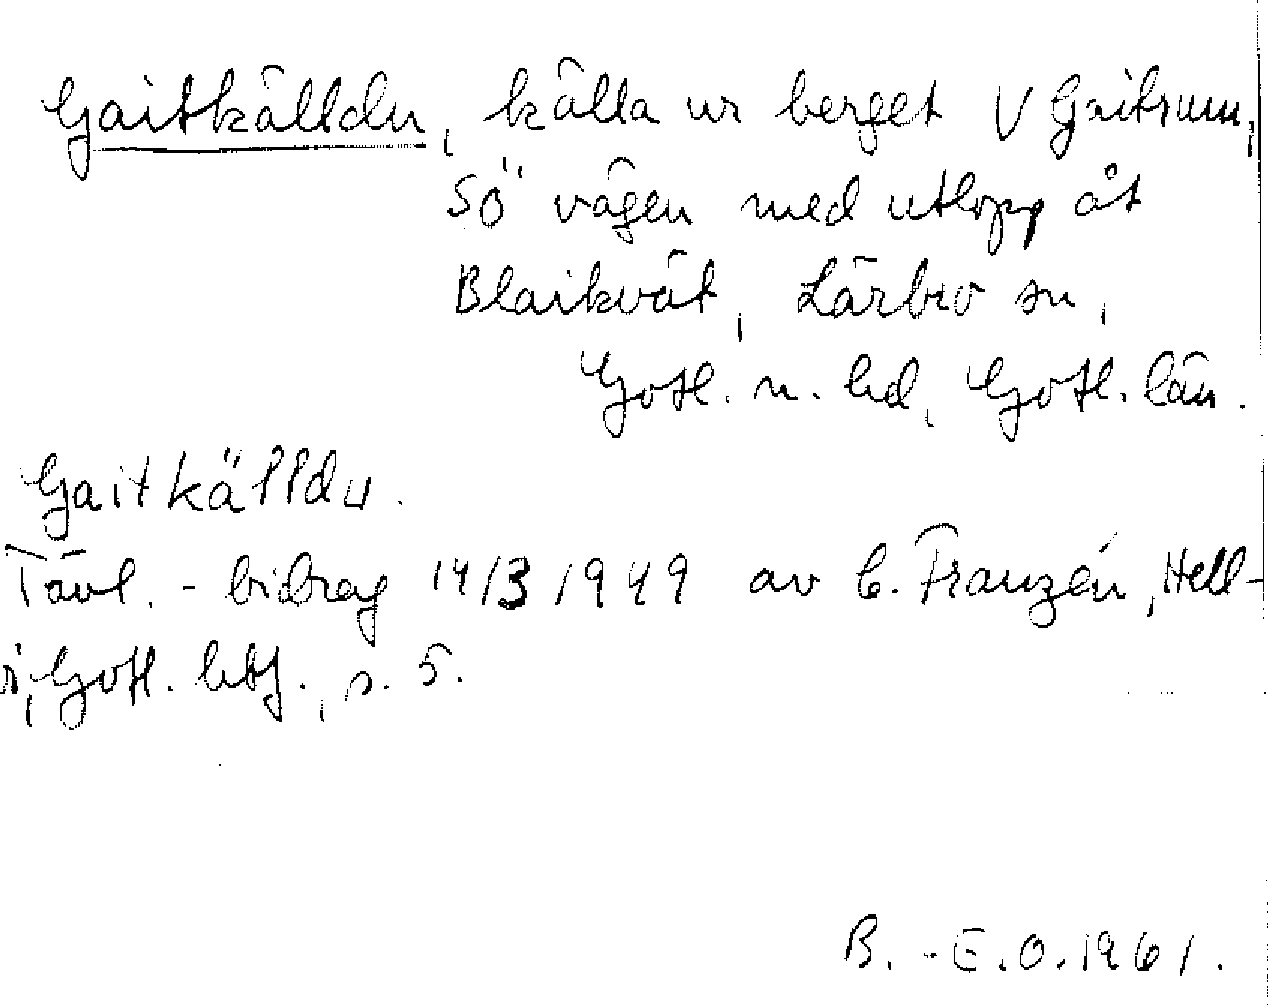 Gaitkälldu, källa ur berget V Gaitrum,
SÖ vägen med utlopp åt
Blaikvät, Lärbro sn,
Gotl. n. hd, Gotl. län.
Gaitkälldu.
Tävl. - bidrag 14/3 1949 av C. Franzén, Hell-
vi, Gotl. htg., s. 5.
B. - E. O. 1961.